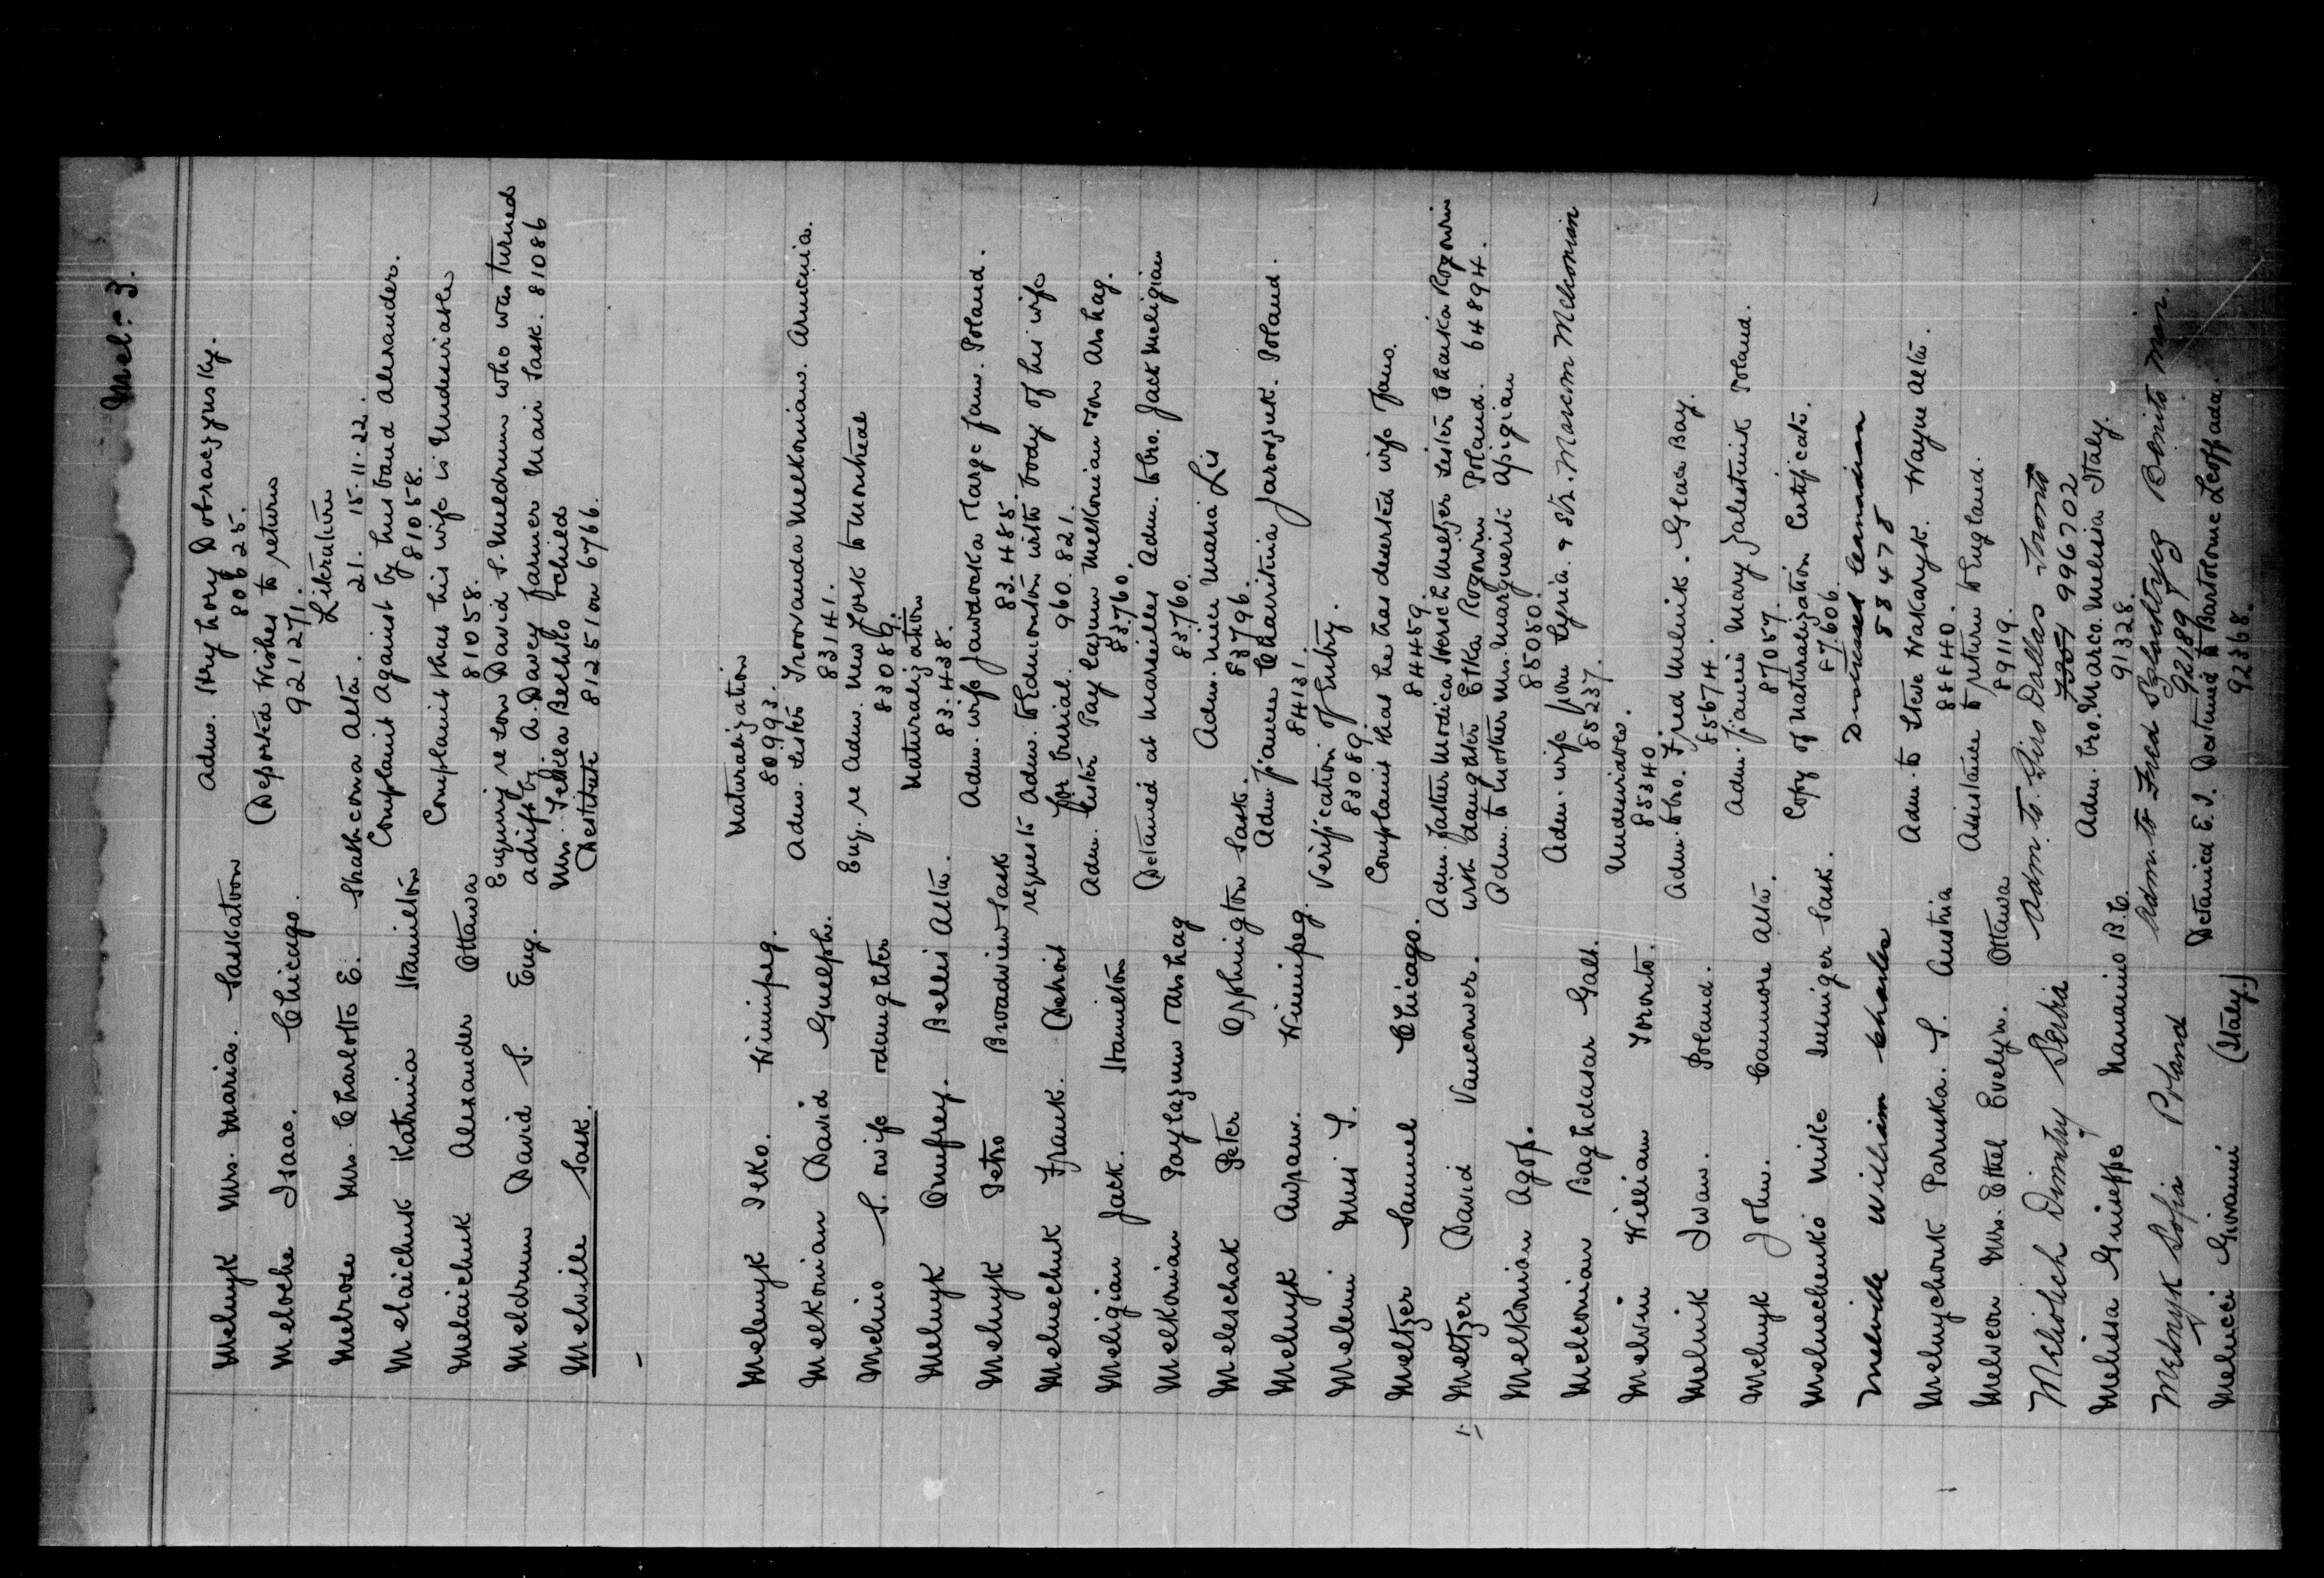 Mel:- 3.
Melnyk Mrs. Maria. Saskatoon Adm. Hryhory Dobraczynsky.
80625.
Meloche Isaac. Chicago. Deported Wishes to return
92127/.
Literature
Melrose Mrs. Charlotte E. Strathcona Alta. 21. 15.11.22.
Melaichuk Katrina Hamilton Complaint Against by husband Alexander.
81058.
Melaichuk Alexander Ottawa Complaint that his wife is Undesirable
81058.
Meldrum David S. Eng. Enquiry re son David S. Meldrum who was turned
adrift by A. Davey farmer Mair Sask. 81086
Melville Sask. Mrs. Tekla Bechko & child
Destitute 81251 on 6766.
Melenyk Teko. Winnipeg. Naturalization
80993.
Melkonian David Guelph. Adm. sister Troovanda Melkonian. Armenia.
83141.
Melino S. & wife & daughter Enq. re Adm. New York to Montreal
83089.
Melnyk Onufrey. Bellis Alta. Naturalization
83438.
Melnyk Petro Broadview Sask Adm. wife Jawdocka & large fam. Poland.
83.485.
Melnechuk Frank. Detroit requests Adm. to Edmonton with body of his wife
for burial. 960.821.
Meligian Jack. Hamilton Adm. sister Paylazum Melkonian & son Arshag.
83760.
Melkonian Paylazum & Arshag Detained at Marseilles Adm. to bro. Jack Meligian
83760.
Meleschak Peter Orphington Sask. Adm. niece Maria Lis
83796.
Melnyk Awpam. Winnipeg. Adm. fiancee Charitinia Jaroszuk. Poland.
84131.
Meleni Miss S. Verification of Entry.
83089
Meltzer Samuel Chicago. Complaint that he has deserted wife & fam.
84459.
1. Meltzer David Vancouver. Adm. father Modica Hersch Meltzer sister Chaika Rozowin
with daughter Etka Rozowin Poland. 64894.
Melkonian Agop. Adm. to mother Mrs. Marguerite Apigian
85050.
Melconian Baghdasar Galt. Adm. wife from Syria. & Str. Maxom Melconian
85237.
Melvin William Toronto. Undesirable.
85340
Melnik Iwan. Poland. Adm. to bro. Fred Melnik. Glace Bay.
85674.
Melnyk John. Canmore Alta. Adm. fiancee Mary Zalestnik Poland.
87057.
Melnechenko Mike Insinger Sask. Copy of Naturalization Certificate.
87606
Melville William Charles Distressed Canadian
88478
Melnychouk Paruska. S. Austria Adm. to Steve Wakaryk. Wayne Alta.
88840.
Melvseon Mrs. Ethel Evelyn. Ottawa Assistance to return to England.
89119.
Meliovich Dimitry Serbia Adm. to Diro Dallas - Toronto
996702
Melissa Guiseppe Nanaimo B.C. Adm. bro. Marco. Melissa Italy.
91328.
Melnyk Sofia Poland Adm. to Fred Benito Man.
92189
Melucci Giovanni (Italy.) Detained E.I. Destined to Bartolome Leoffada.
92368.